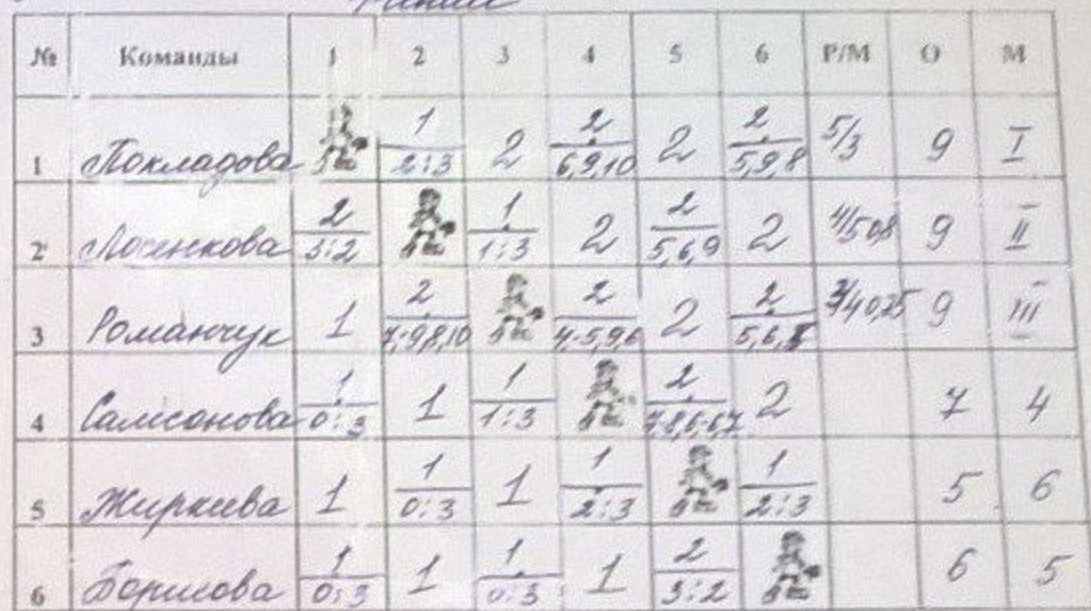 № Команды 1 2 3 4 5 6 Р/М О М
1 Покладова 1 2:3 2 2 6,9,10 2 2 5,9,8 5/3 9 I
2 Лосенкова 2 3:2 1 1:3 2 2 5,6,9 2 4/5 0,8 9 II
3 Романчук 1 2 7,-9,8,10 2 4,-5,9,6 2 2 5,6, 3/4 0,75 9 III
4 Самсонова 1 0:3 1 1 1:3 2 2 7 4
5 Жиркива 1 1 0:3 1 1 2:3 1 2:3 5 6
6 1 0:3 1 1 0:3 1 2 3:2 6 5